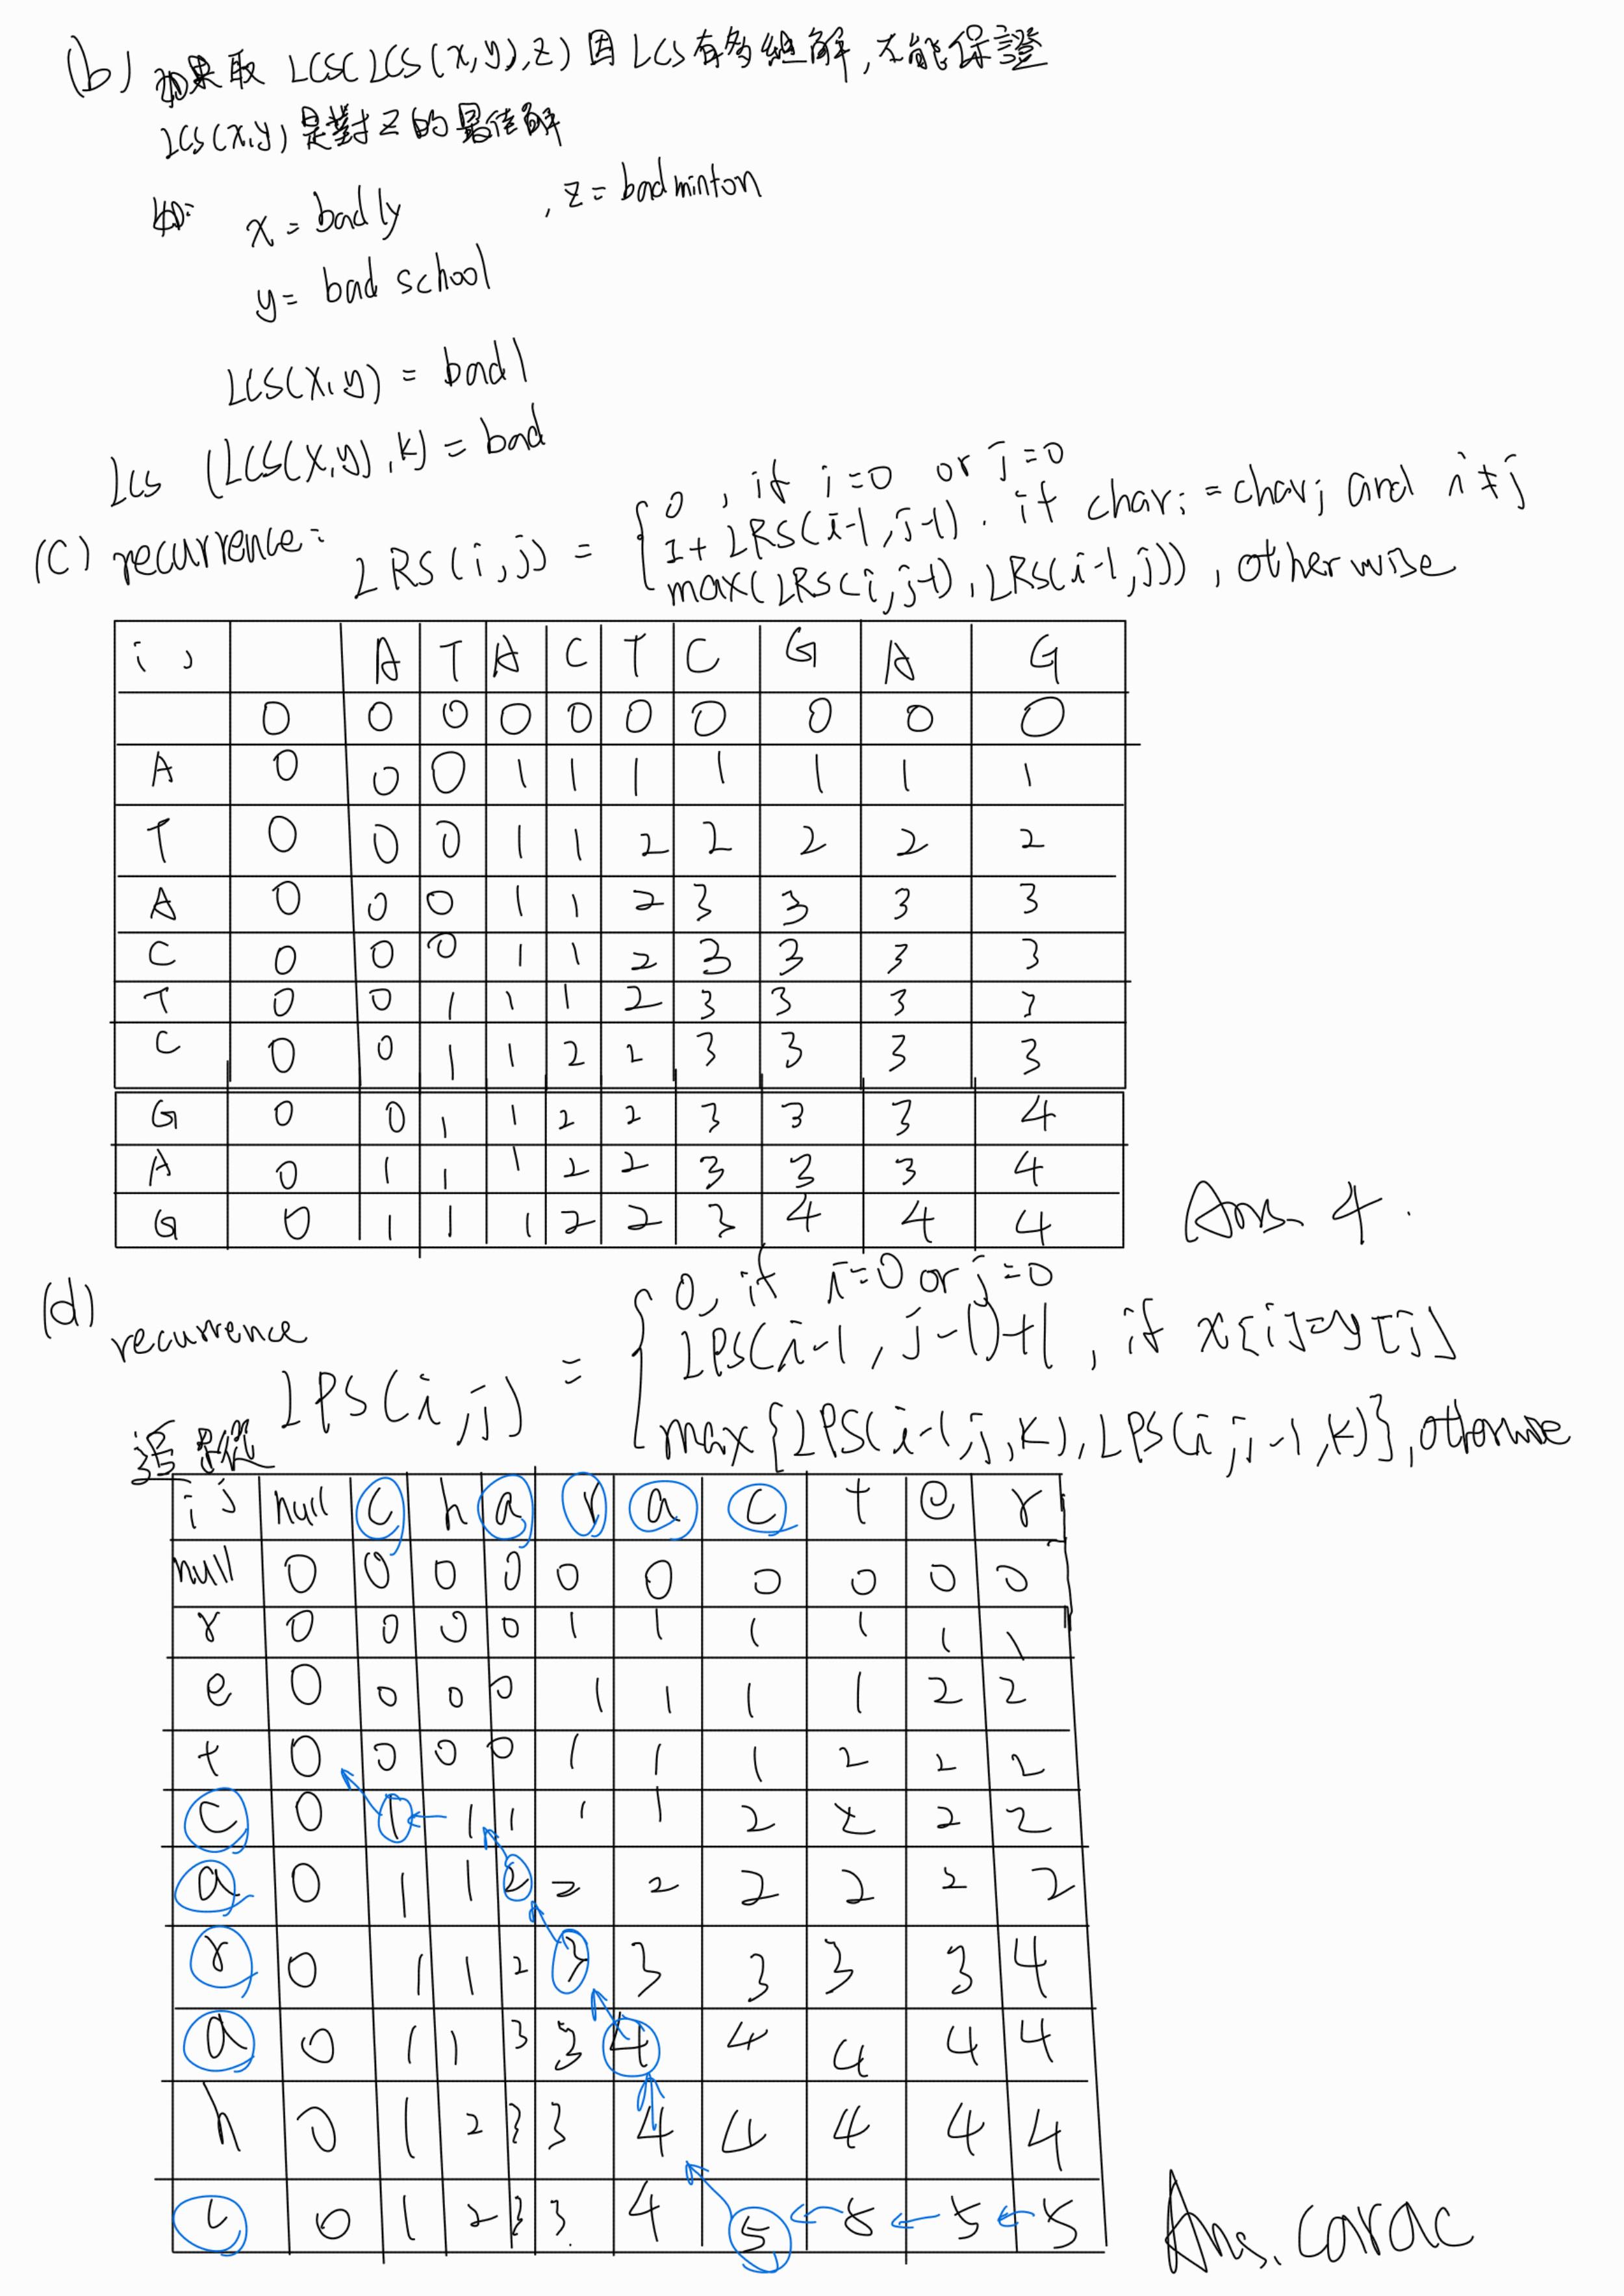 (b) 如果取 LCS(LCS(x,y),z) 因 LCS 有多組解,不能保證
LCS(x,y) 是對 z 的最佳解
如: x = badly , z = badminton
y = bad school
LCS(x,y) = badl
LCS (LCS(x,y),k) = bad
(c) recurrence: LRS(i,j) = { 0 , if i=0 or j=0
1+ LRS(i-1,j-1). if chari = charj and i≠j
max(LRS(i,j-1),LRS(i-1,j)) , otherwise
i j A T A C T C G A G
0 0 0 0 0 0 0 0 0 0
A 0 0 0 1 1 1 1 1 1 1
T 0 0 0 1 1 2 2 2 2 2
A 0 0 0 1 1 2 3 3 3 3
C 0 0 0 1 1 2 3 3 3 3
T 0 0 1 1 1 2 3 3 3 3
C 0 0 1 1 2 2 3 3 3 3
G 0 0 1 1 2 2 3 3 3 4
A 0 1 1 1 2 2 3 3 3 4
G 0 1 1 1 2 2 3 4 4 4
Ans. 4.
(d) recurrence
LPS(i,j) = { 0, if i=0 or j=0
LPS(i-1, j-1)+1 , if x[i]=y[j]
max{LPS(i-1,j,k),LPS(i,j-1,k)},otherwise
i j null c h a r a c t e r
null 0 0 0 0 0 0 0 0 0 0
r 0 0 0 0 1 1 1 1 1 1
e 0 0 0 0 1 1 1 1 2 2
t 0 0 0 0 1 1 1 2 2 2
c 0 1 1 1 1 1 2 2 2 2
a 0 1 1 2 2 2 2 2 2 2
r 0 1 1 2 3 3 3 3 3 4
a 0 1 1 3 3 4 4 4 4 4
h 0 1 2 3 3 4 4 4 4 4
c 0 1 2 3 3 4 5 ← 5 ← 5 ← 5
Ans. carac